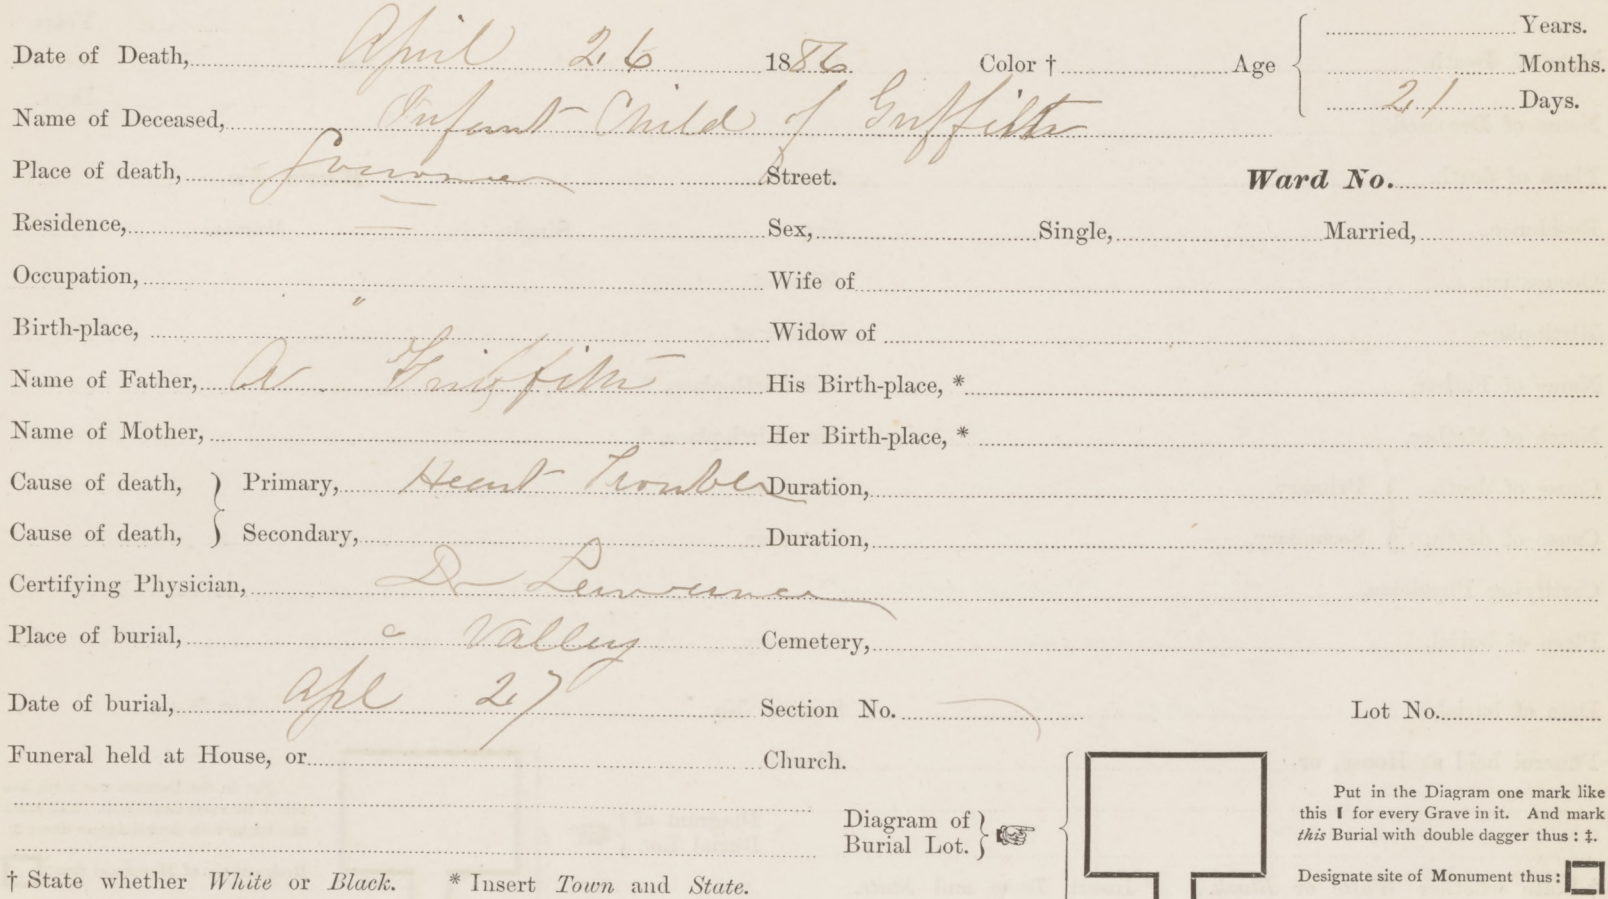 Date of Death, April 26 1886. Color † Age { Years.
Months.
21 Days.
Name of Deceased, Infant Child of Griffith
Place of death, Street. Ward No.
Residence, Sex, Single, Married,
Occupation, Wife of
Birth-place, " Widow of
Name of Father, Griffith His Birth-place, *
Name of Mother, Her Birth-place, *
Cause of death, } Primary, Heart Trouble Duration,
Cause of death, } Secondary, Duration,
Certifying Physician, Dr Lawrence
Place of burial, Valley Cemetery,
Date of burial, Apl 27 Section No. Lot No.
Funeral held at House, or Church.
Diagram of
Burial Lot. }
Put in the Diagram one mark like
this I for every Grave in it. And mark
this Burial with double dagger thus : ‡.
Designate site of Monument thus :
† State whether White or Black. * Insert Town and State.